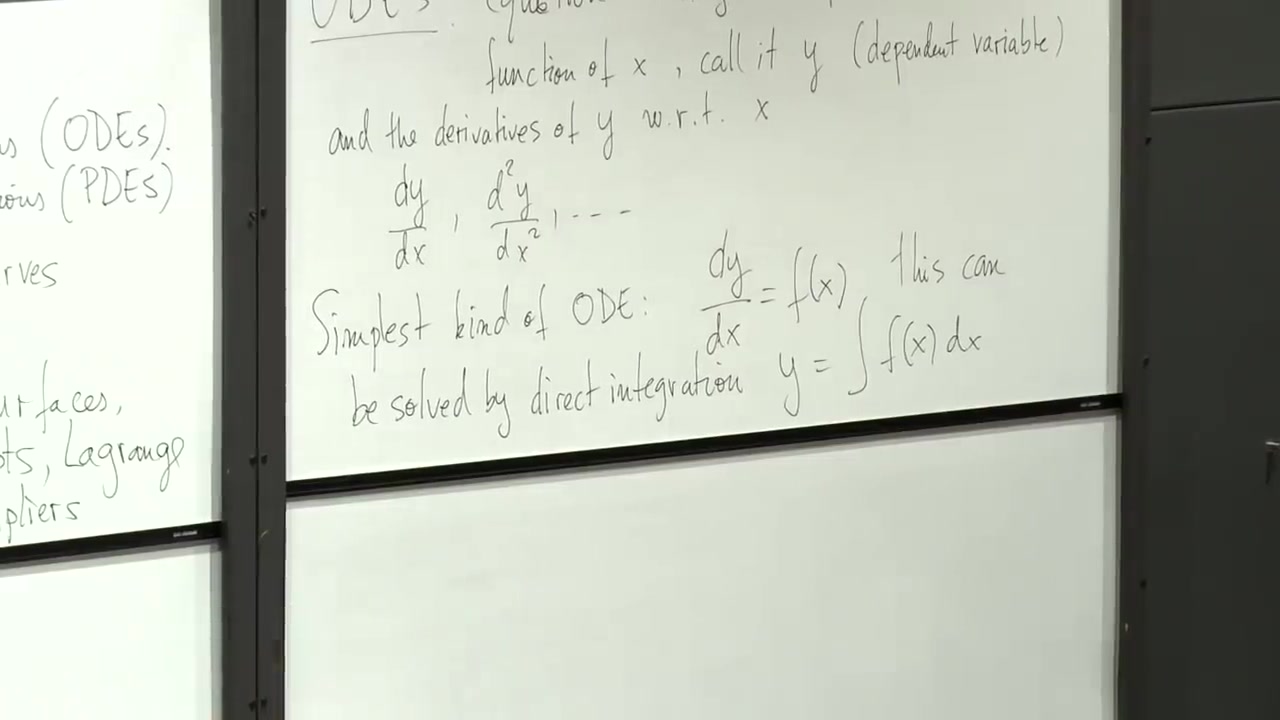 (ODEs).
(PDEs)
Lagrange
ODEs.
function of x , call it y (dependent variable)
and the derivatives of y w.r.t. x
dy/dx , d²y/dx² , ----
Simplest kind of ODE: dy/dx = f(x), this can
be solved by direct integration y = ∫ f(x) dx